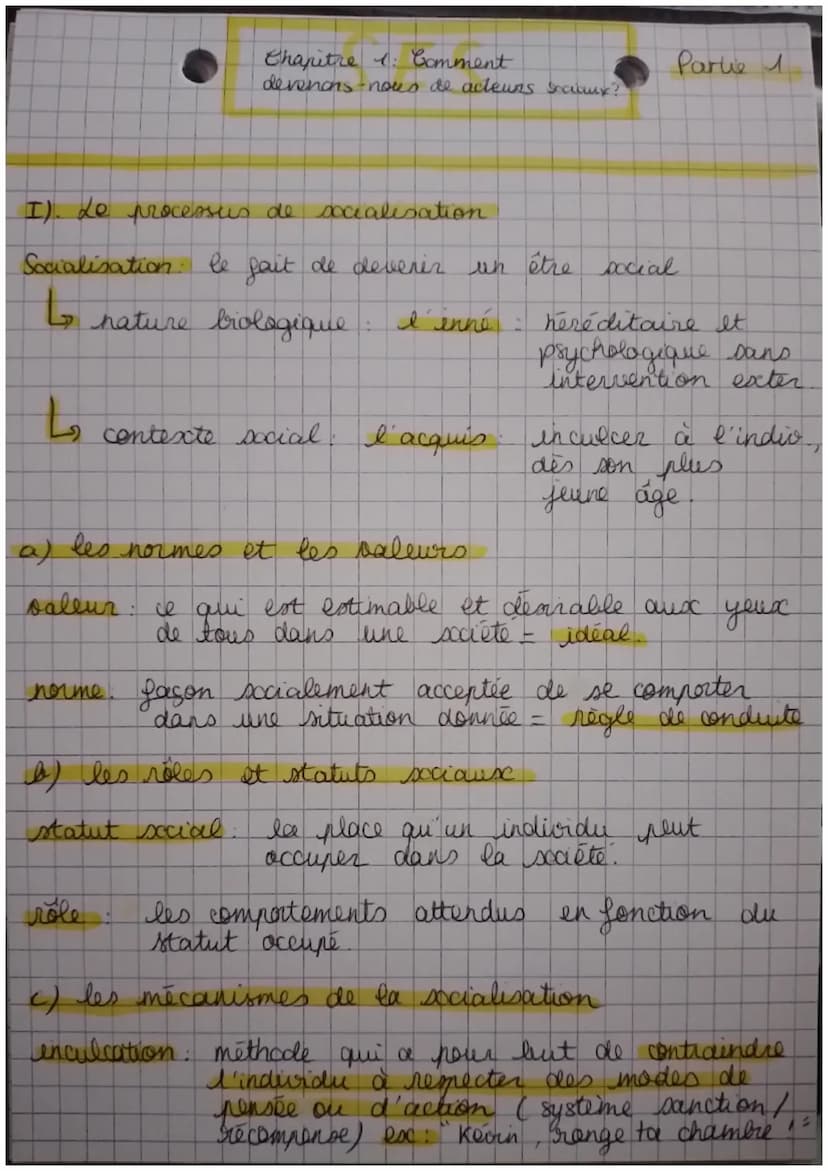 SES
Chapitre 1: Comment
devenons-nous de acteurs sociaux?
Partie 1
I). Le processus de socialisation
Socialisation: le fait de devenir un être social
↳ nature biologique : l'inné : héréditaire et
psychologique sans
intervention exter.
↳ contexte social : l'acquis : inculcer à l'indiv.,
dès son plus
jeune âge.
a) les normes et les valeurs
valeur : ce qui est estimable et désirable aux yeux
de tous dans une société = idéal.
norme : façon socialement acceptée de se comporter
dans une situation donnée = règle de conduite
b) les rôles et statuts sociaux
statut social : la place qu'un individu peut
occuper dans la société.
rôle : les comportements attendus en fonction du
statut occupé.
c) les mécanismes de la socialisation
inculcation : méthode qui a pour but de contraindre
l'individu à respecter des modes de
pensée ou d'action (système sanction/
récompense) ex : "Kévin, range ta chambre !"